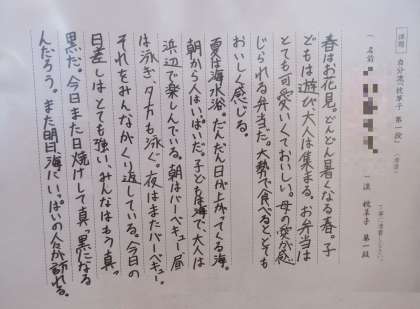 課題 自分流 枕草子 第一段
（名前
（清書）
丁寧に清書しなさい。
一 流 枕草子 第一段
春はお花見。どんどん暑くなる春。子
どもは遊び、大人は集まる。お弁当は
とても可愛いくておいしい。母の愛が感
じられる弁当だ。大勢で食べると、とても
おいしく感じる。
夏は海水浴。だんだん日が上がってくる海。
朝から人はいっぱいだ。子どもは海で、大人は
浜辺で楽しんでいる。朝はバーベキュー、昼
は泳ぎ、夕方も泳ぐ。夜はまたバーベキュー。
それをみんながくり返している。今日の
日差しはとても強い。みんなはもう真っ
黒だ。今日また日焼けして真っ黒になる
人だろう。また明日、海にいっぱいの人が訪れる。